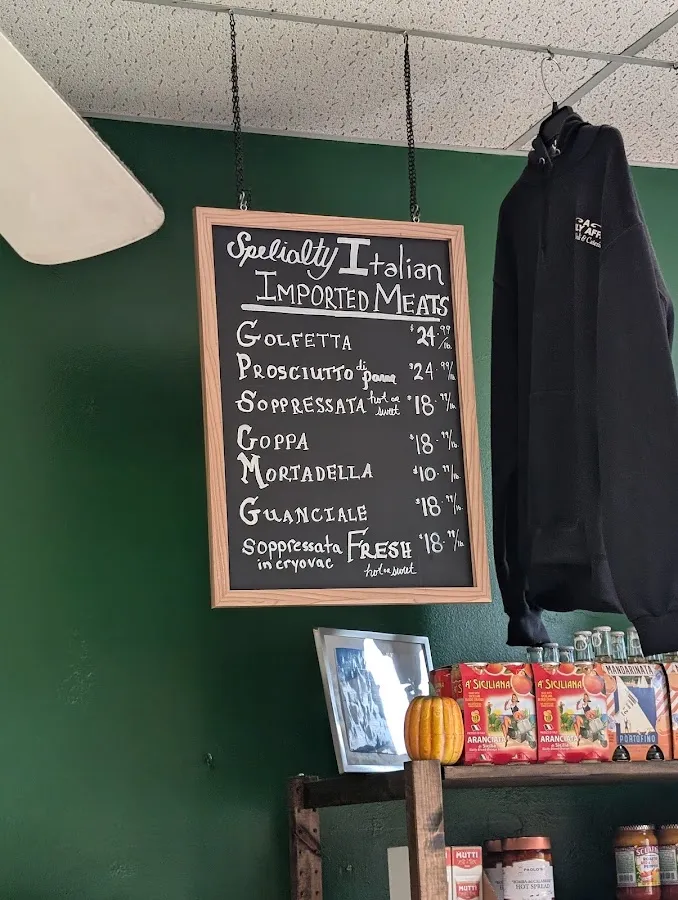 Spelialty Italian
IMPORTED MEATS
GOLFETTA $24.99/lb.
PROSCIUTTO di parma $24.99/lb.
SOPPRESSATA hot or sweet $18.99/lb.
COPPA $18.99/lb.
MORTADELLA $10.99/lb.
GUANCIALE $18.99/lb.
Soppressata FRESH $18.99/lb.
in cryovac hot or sweet
A' SICILIANA
ARANCIATA
A' SICILIANA
ARANCIATA
MANDARINATA
PORTOFINO
MUTTI
MUTTI
HOT SPREAD